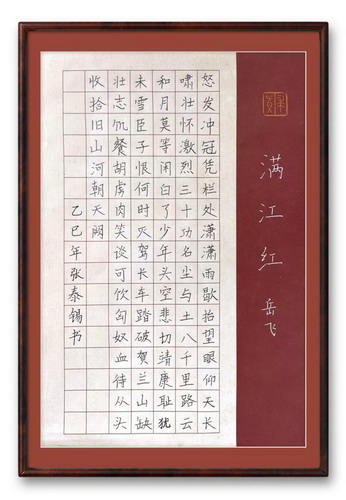 满江红 岳飞
怒发冲冠凭栏处潇潇雨歇抬望眼仰天长
啸壮怀激烈三十功名尘与土八千里路云
和月莫等闲白了少年头空悲切靖康耻犹
未雪臣子恨何时灭驾长车踏破贺兰山缺
壮志饥餐胡虏肉笑谈可饮匈奴血待从头
收拾旧山河朝天阙
乙巳年张泰锡书